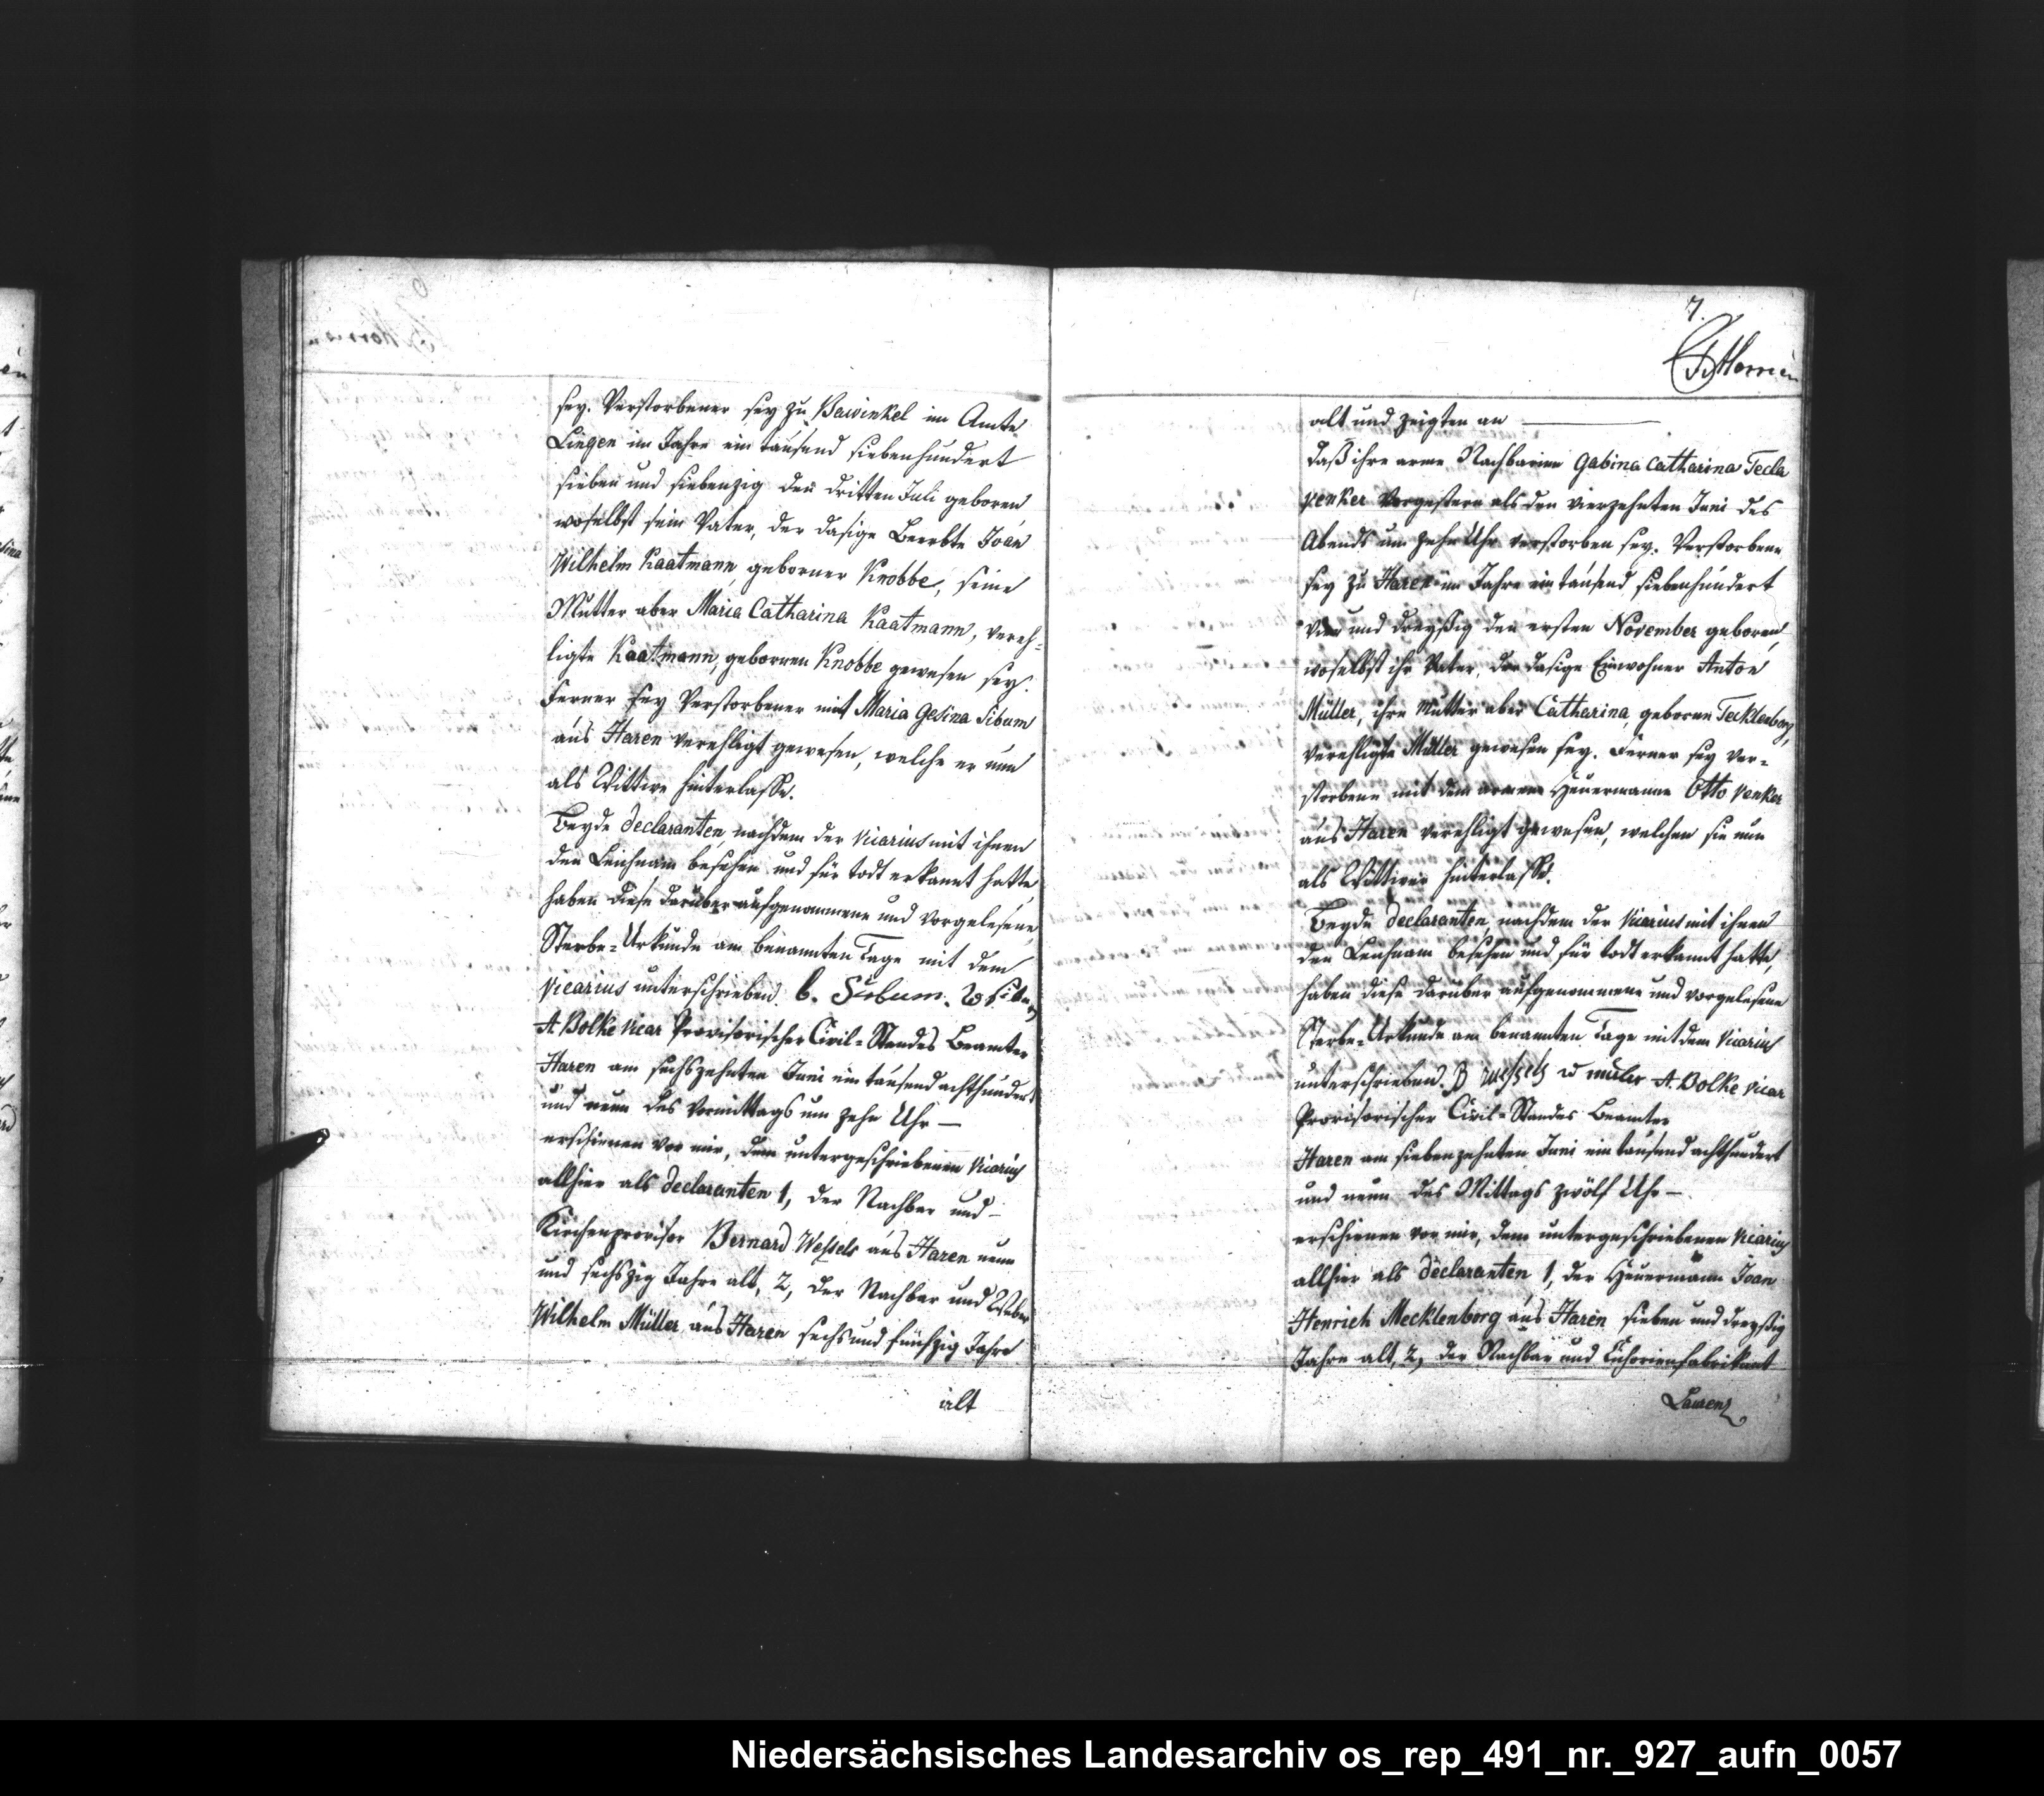 sey. Verstorbener sey zu Bawinkel im Amte
Lingen im Jahre ein tausend siebenhundert
sieben und siebenzig den dritten Juli geboren
woselbst sein Vater, der dasige Beerbte Joan
Wilhelm Kaatmann, geborner Knobbe, seine
Mutter aber Maria Catharina Kaatmann, vereh-
ligte Kaatmann, gebornen Knobbe gewesen sey.
Ferner sey Verstorbener mit Maria Gesina Sibum
aus Haren verehligt gewesen, welche er nun
als Wittwe hinterlasse.
Beyde declaranten, nachdem der Vicarius mit ihnen
den Leichnam besehen und für todt erkannt hatte
haben diese darüber aufgenommene und vorgelesene
Sterbe-Urkunde am benannten Tage mit dem
Vicarius unterschrieben. b. Siebum.
A. Bolke Vicar Provisorischer Civil-Standes Beamter
Haren am sechszehnten Juni ein tausend achthundert
und neun des Vormittags um zehn Uhr —
erschienen vor mir, dem untergeschriebenen Vicarius
allhier als declaranten 1, der Nachbar und
Kirchenprovisor Bernard Wessels aus Haren neun
und sechszig Jahre alt, 2, der Nachbar und Weber
Wilhelm Müller aus Haren sechs und fünfzig Jahre
alt
7.
alt und zeigten an
daß ihre arme Nachbarinn Gabina Catharina Tecla
Venker vorgestern als den vierzehnten Juni des
Abends um zehn Uhr verstorben sey. Verstorbene
sey zu Haren im Jahre ein tausend siebenhundert
vier und dreyßig den ersten November geboren,
woselbst ihr Vater, der dasige Einwohner Anton
Müller, ihre Mutter aber Catharina, geborne Tecklenborg,
verehligte Müller gewesen sey. Ferner sey Ver-
storbene mit dem armen Heuermanne Otto Venker
aus Haren verehligt gewesen, welchen sie nun
als Wittwer hinterlasse.
Beyde declaranten, nachdem der Vicarius mit ihnen
den Leichnam besehen und für todt erkannt hatte,
haben diese darüber aufgenommene und vorgelesene
Sterbe-Urkunde am benannten Tage mit dem Vicarius
unterschrieben. B wessels W müler A. Bolke Vicar
Provisorischer Civil-Standes Beamter
Haren am siebenzehnten Juni ein tausend achthundert
und neun des Mittags zwölf Uhr —
erschienen vor mir, dem untergeschriebenen Vicarius
allhier als declaranten 1, der Heuermann Joan
Henrich Mecklenborg aus Haren sieben und dreyßig
Jahre alt, 2, der Nachbar und Cichorienfabrikant
Laurenz
Niedersächsisches Landesarchiv os_rep_491_nr._927_aufn_0057